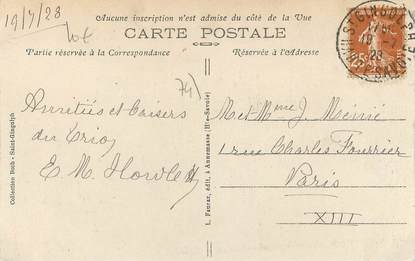 Aucune inscription n'est admise du côté de la Vue
CARTE POSTALE
Partie réservée à la Correspondance
Réservée à l'Adresse
19/7/28
74)
Amitiés et baisers
du trio
E. M.
Met Mme J.
1 rue Charles Fourrier
Paris
XIII
Collection Boch - Saint-Gingolph
L. Fauraz, édit. à Annemasse (Hte-Savoie)
ST GINGOLPH
25c